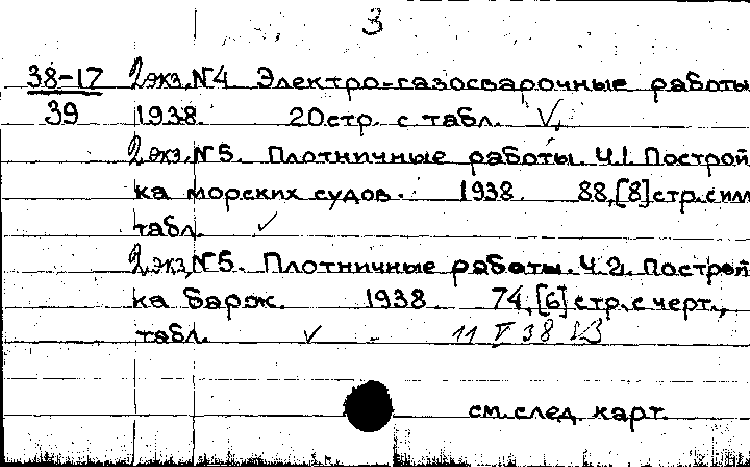 3
38-17 2 экз. №4 Электро-газосварочные работы
39 1938. 20стр. с табл. V.
2 экз. №5. Плотничные работы. Ч.1. Построй
ка морских судов. 1938. 88,[8] стр. с илл
табл. ✓
2 экз. №5. Плотничные работы. Ч.2. Построй
ка барж. 1938. 74,[6] стр. с черт.,
табл. ✓ 11 V 38
см. след. карт.